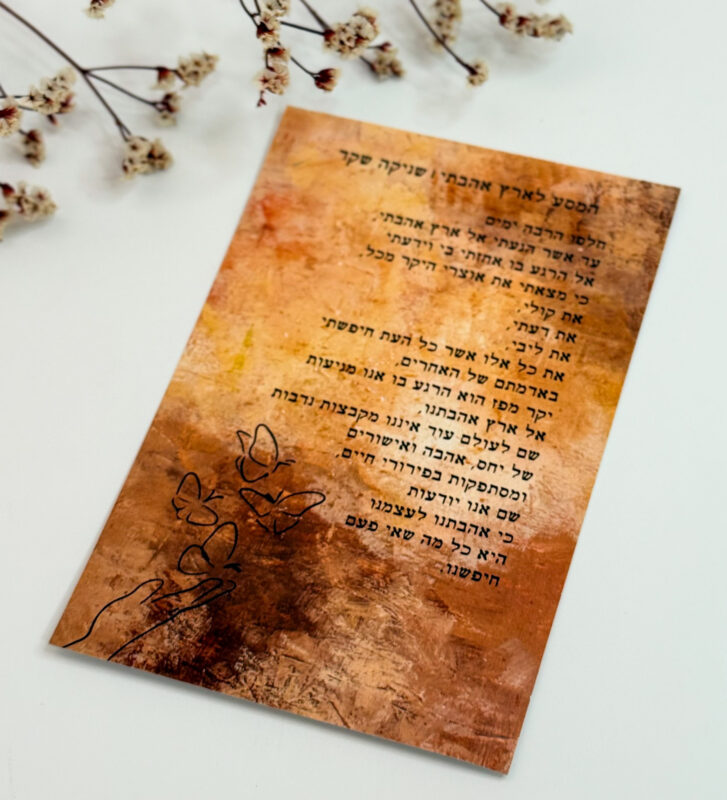 המסע לארץ אהבתי | שניקה שקר
חלפו הרבה ימים
עד אשר הגעתי אל ארץ אהבתי,
אל הרגע בו אחזתי בי וידעתי
כי מצאתי את אוצרי היקר מכל,
את קולי,
את דעתי,
את ליבי,
את כל אלו אשר כל העת חיפשתי
באדמתם של האחרים,
יקר מפז הוא הרגע בו אנו מגיעות
אל ארץ אהבתנו,
שם לעולם עוד איננו מקבצות נדבות
של יחס, אהבה ואישורים
ומסתפקות בפירורי חיים,
שם אנו יודעות
כי אהבתנו לעצמנו
היא כל מה שאי פעם
חיפשנו.